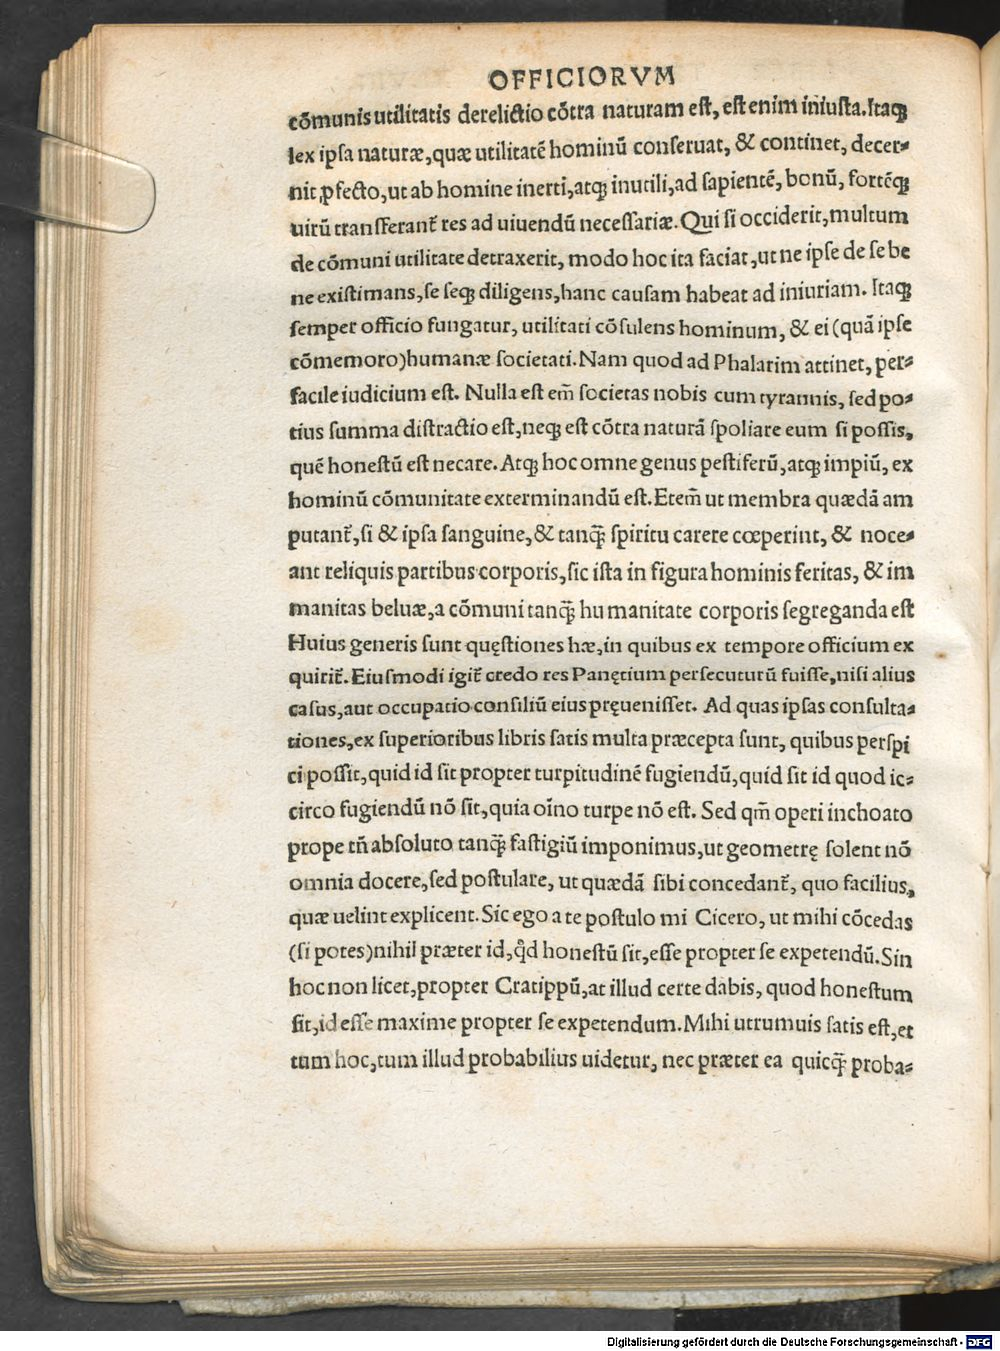 OFFICIORVM
cõmunis utilitatis derelictio cõtra naturam est, est enim iniusta. Itaqꝫ
lex ipsa naturæ, quæ utilitatẽ hominũ conseruat, & continet, decer-
nit ꝓfecto, ut ab homine inerti, atqꝫ inutili, ad sapientẽ, bonũ, fortẽqꝫ
uirũ transferant᷑ res ad uiuendũ necessariæ. Qui si occiderit, multum
de cõmuni utilitate detraxerit, modo hoc ita faciat, ut ne ipse de se be
ne existimans, se seqꝫ diligens, hanc causam habeat ad iniuriam. Itaqꝫ
semper officio fungatur, utilitati cõsulens hominum, & ei (quã ipse
cõmemoro) humanæ societati. Nam quod ad Phalarim attinet, per-
facile iudicium est. Nulla est em̃ societas nobis cum tyrannis, sed po-
tius summa distractio est, neqꝫ est cõtra naturã spoliare eum si possis,
quẽ honestũ est necare. Atqꝫ hoc omne genus pestiferũ, atqꝫ impiũ, ex
hominũ cõmunitate exterminandũ est. Etem̃ ut membra quædã am
putant᷑, si & ipsa sanguine, & tanqꝫ̃ spiritu carere cœperint, & noce-
ant reliquis partibus corporis, sic ista in figura hominis feritas, & im
manitas beluæ, a cõmuni tanqꝫ̃ hu manitate corporis segreganda est
Huius generis sunt quęstiones hæ, in quibus ex tempore officium ex
quirit᷑. Eiusmodi igit᷑ credo res Panętium persecuturũ fuisse, nisi alius
casus, aut occupatio consiliũ eius pręuenisset. Ad quas ipsas consulta-
tiones, ex superioribus libris satis multa præcepta sunt, quibus perspi
ci possit, quid id sit propter turpitudinẽ fugiendũ, quid sit id quod ic-
circo fugiendũ nõ sit, quia oĩno turpe nõ est. Sed qm̃ operi inchoato
prope tñ absoluto tanqꝫ̃ fastigiũ imponimus, ut geometrę solent nõ
omnia docere, sed postulare, ut quædã sibi concedant᷑, quo facilius,
quæ uelint explicent. Sic ego a te postulo mi Cicero, ut mihi cõcedas
(si potes) nihil præter id, qͦd honestũ sit, esse propter se expetendũ. Sin
hoc non licet, propter Cratippũ, at illud certe dabis, quod honestum
sit, id esse maxime propter se expetendum. Mihi utrumuis satis est, et
tum hoc, tum illud probabilius uidetur, nec præter ea quicqꝫ̃ proba-
Digitalisierung gefördert durch die Deutsche Forschungsgemeinschaft - DFG